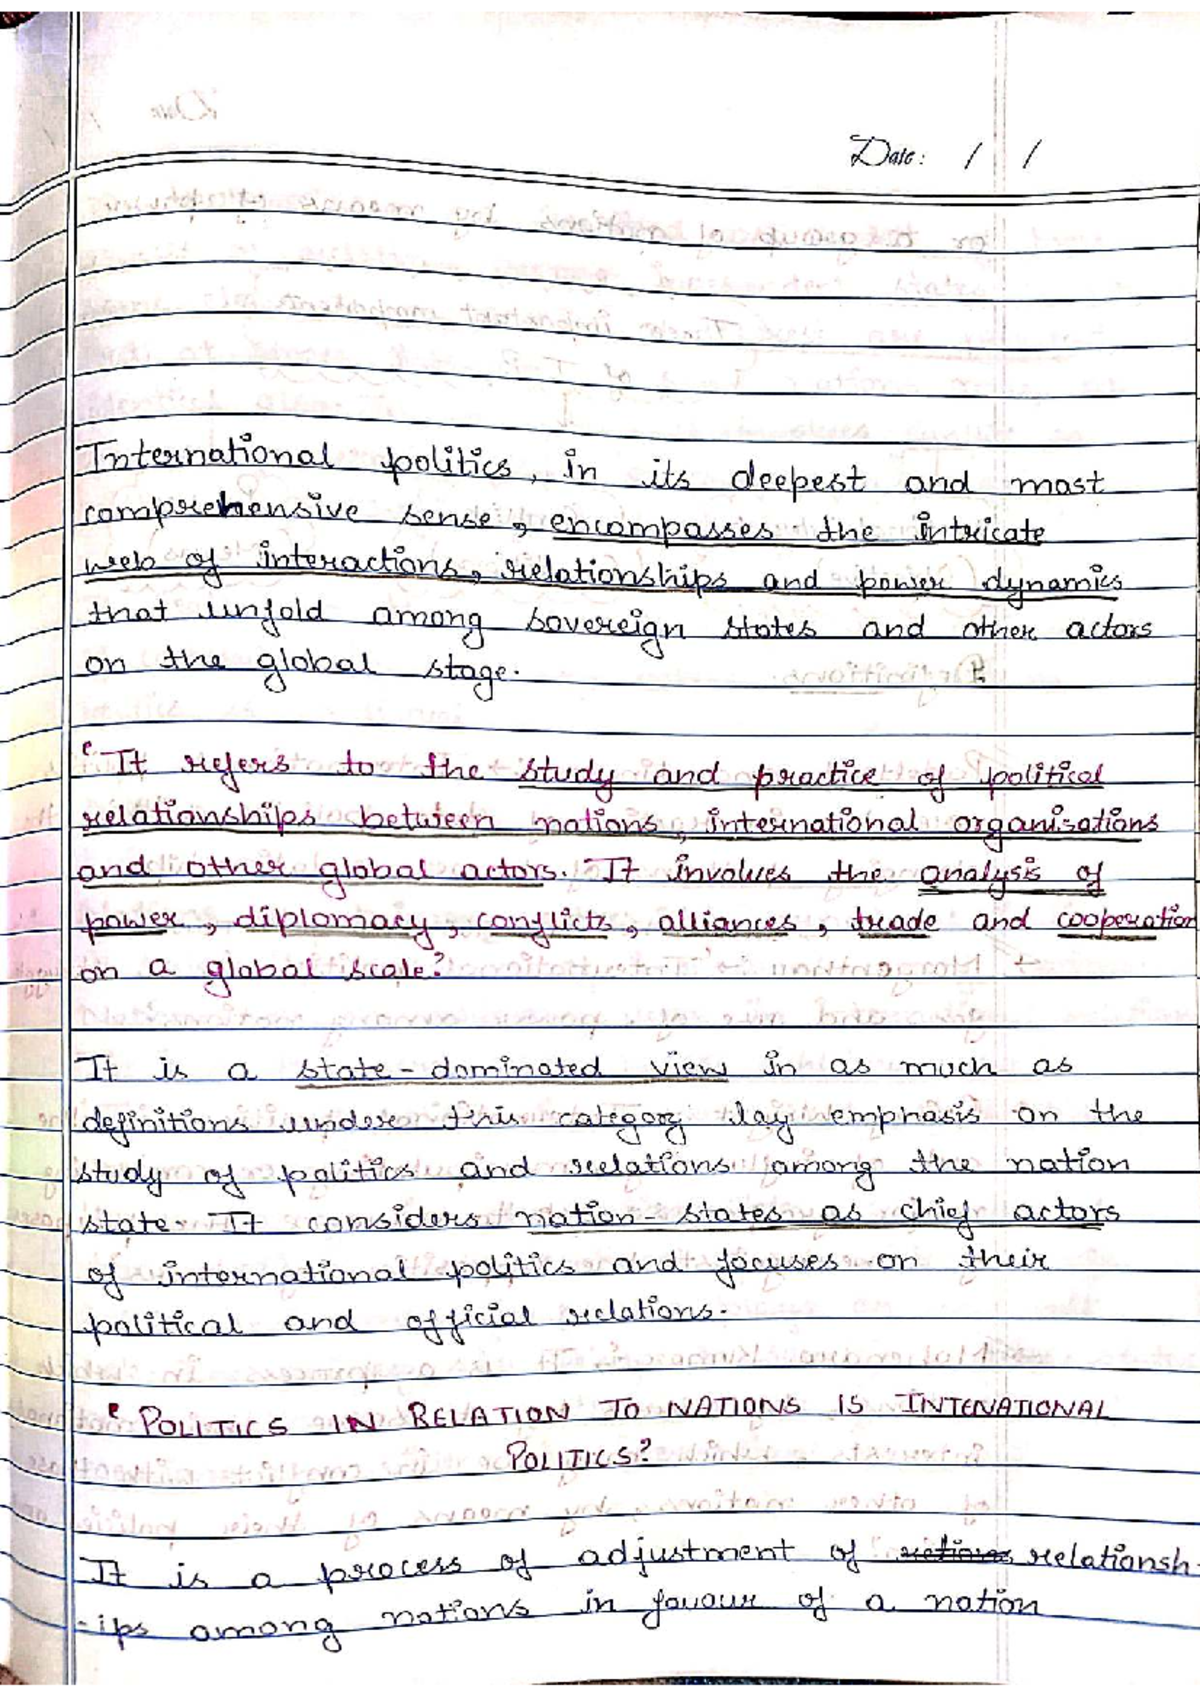 Date: / /
International politics, in its deepest and most
comprehensive sense, encompasses the intricate
web of interactions, relationships and power dynamics
that unfold among sovereign states and other actors
on the global stage.
"It refers to the study and practice of political
relationships between nations, international organisations
and other global actors. It involves the analysis of
power, diplomacy, conflicts, alliances, trade and cooperation
on a global scale."
It is a state-dominated view in as much as
definitions under this category lay emphasis on the
study of politics and relations among the nation
state. It considers nation-states as chief actors
of international politics and focuses on their
political and official relations.
"POLITICS IN RELATION TO NATIONS IS INTENATIONAL
POLITICS"
It is a process of adjustment of relationsh-
-ips among nations in favour of a nation